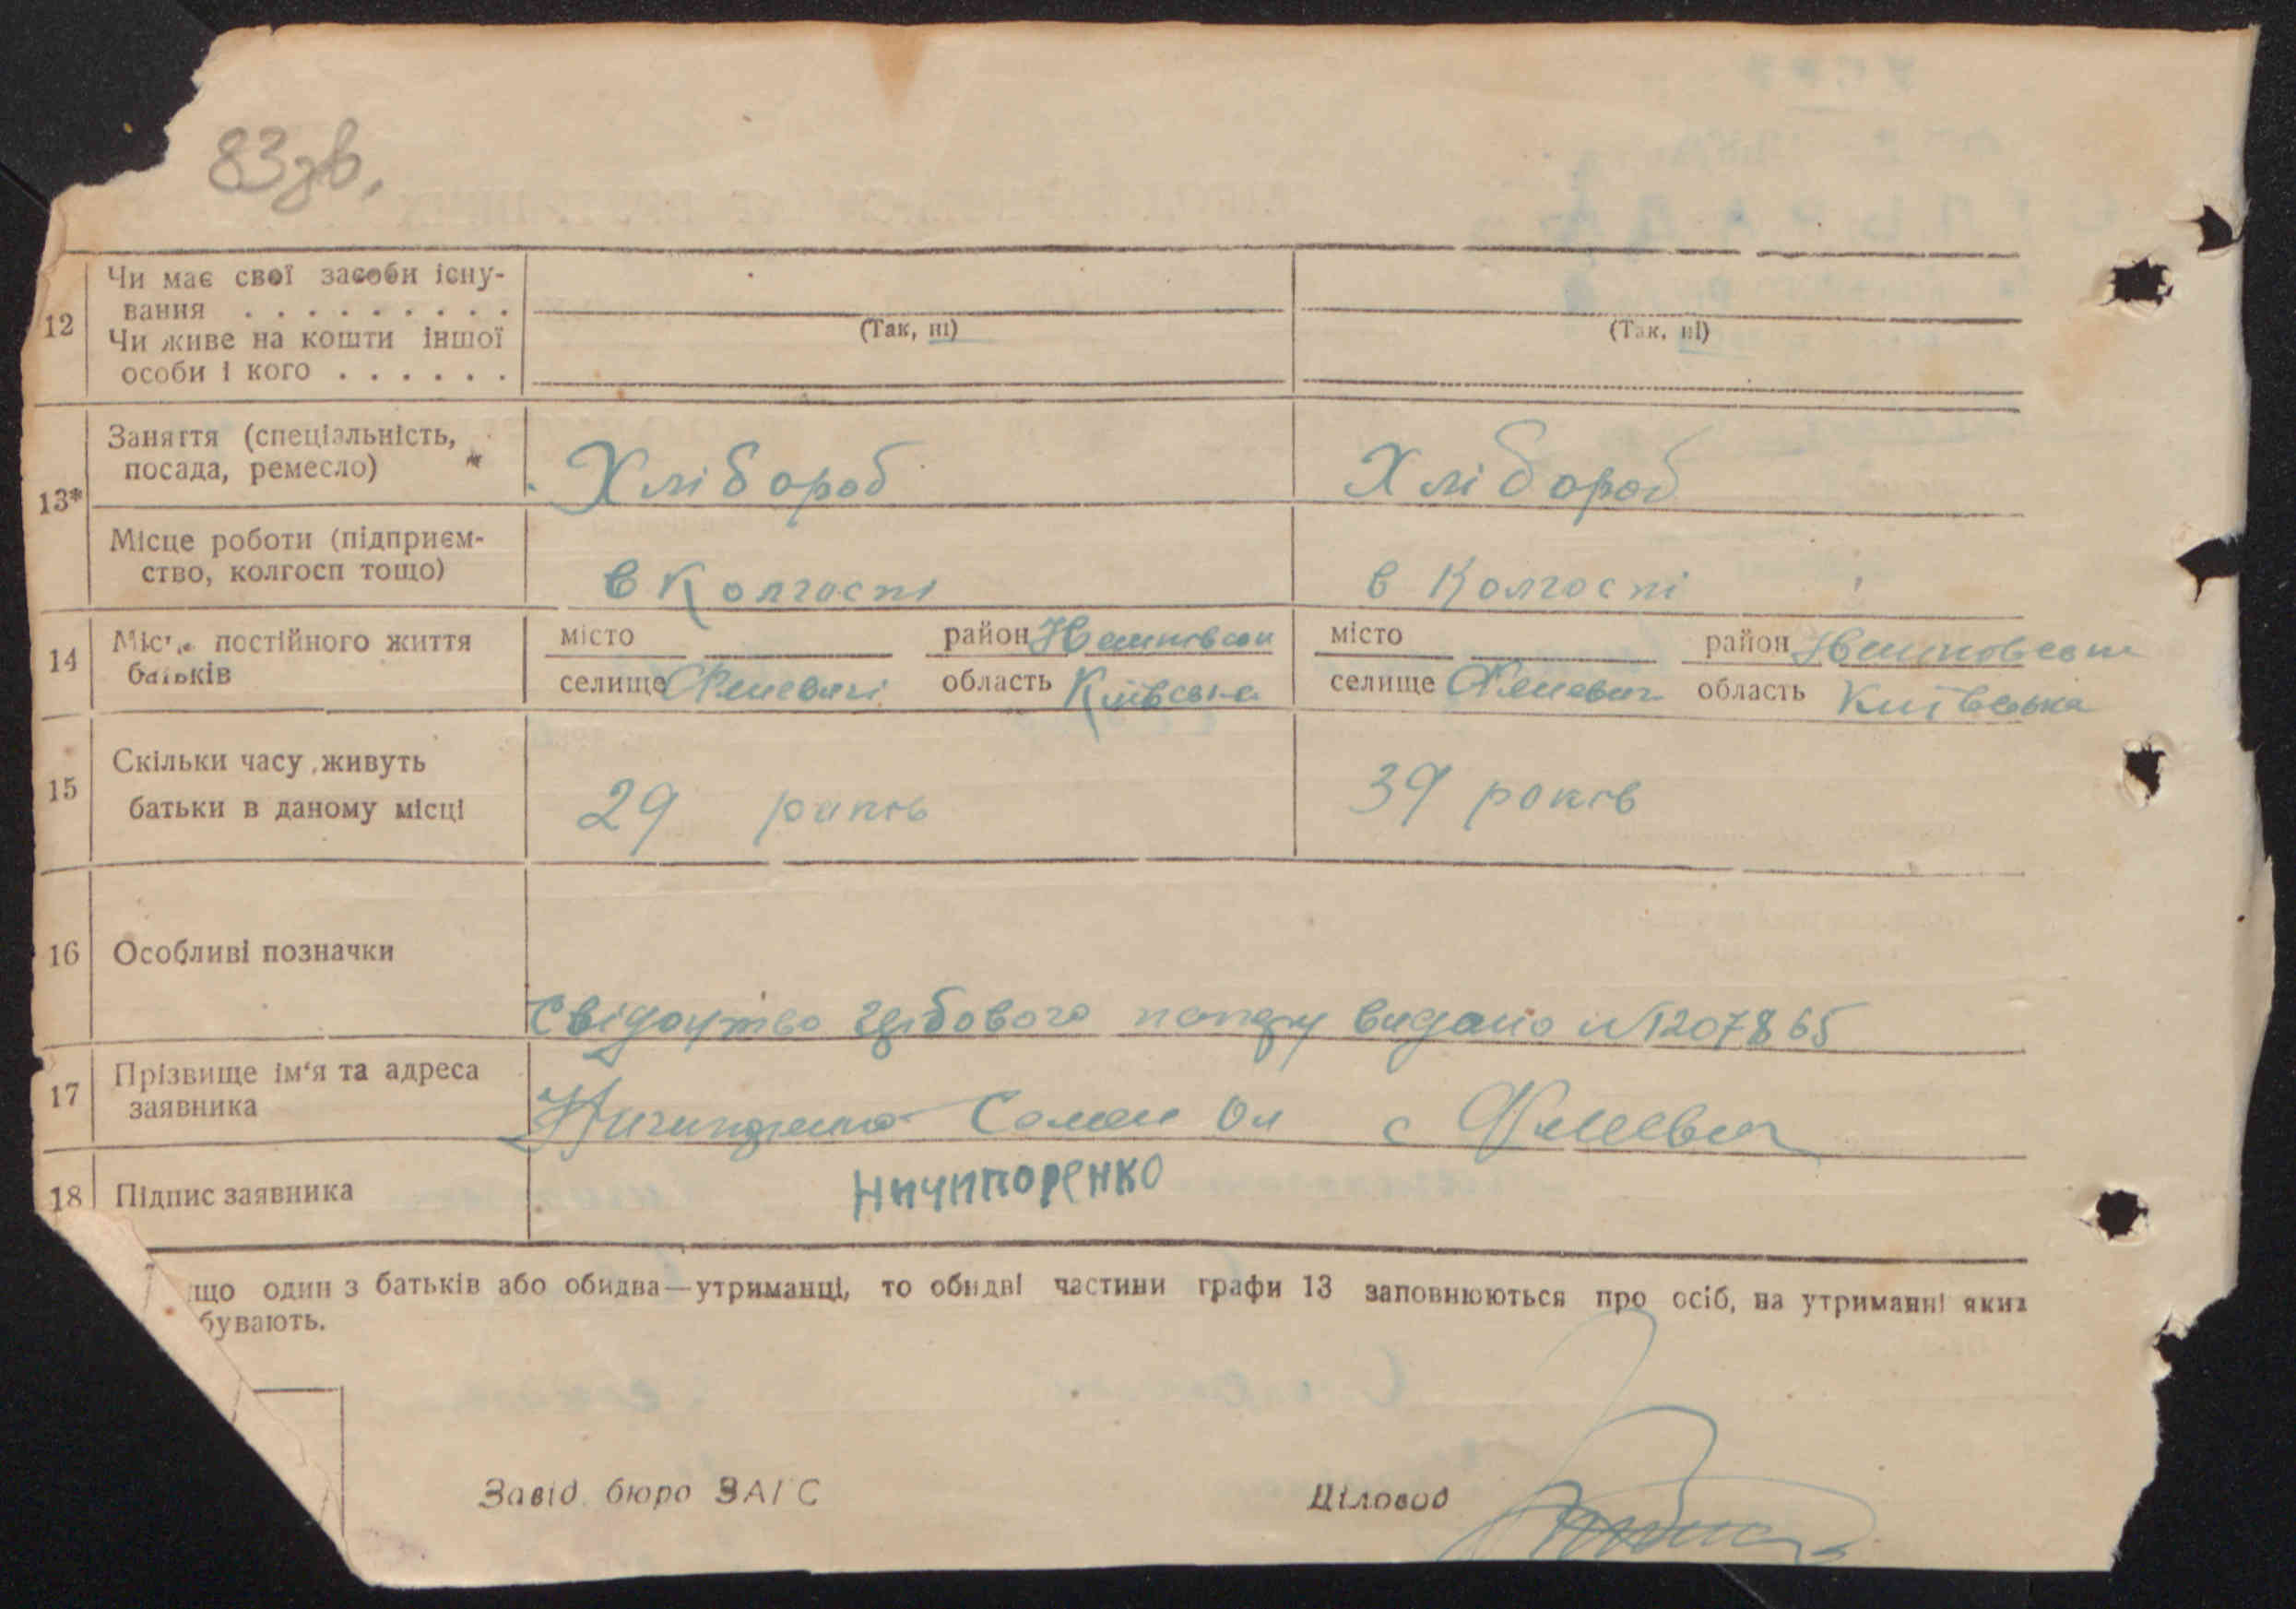 83зв.
12 Чи має свої засоби існу-
вання . . . . . . . . .
(Так, ні) (Так, ні)
Чи живе на кошти іншої
особи і кого . . . . . .
13* Заняття (спеціальність,
посада, ремесло) Хлібороб Хлібороб
Місце роботи (підприєм-
ство, колгосп тощо) в Колгоспі в Колгоспі
14 Місце постійного життя
батьків
місто район місто район
селище область Київська селище область Київська
15 Скільки часу живуть
батьки в даному місці 29 років 39 років
16 Особливі позначки
Свідоцтво видано №1207865
17 Прізвище ім'я та адреса
заявника Ничипоренко Семен Ол с
18 Підпис заявника Ничипоренко
що один з батьків або обидва—утриманці, то обидві частини графи 13 заповнюються про осіб, на утриманні яких
бувають.
Завід. бюро ЗАГС Діловод